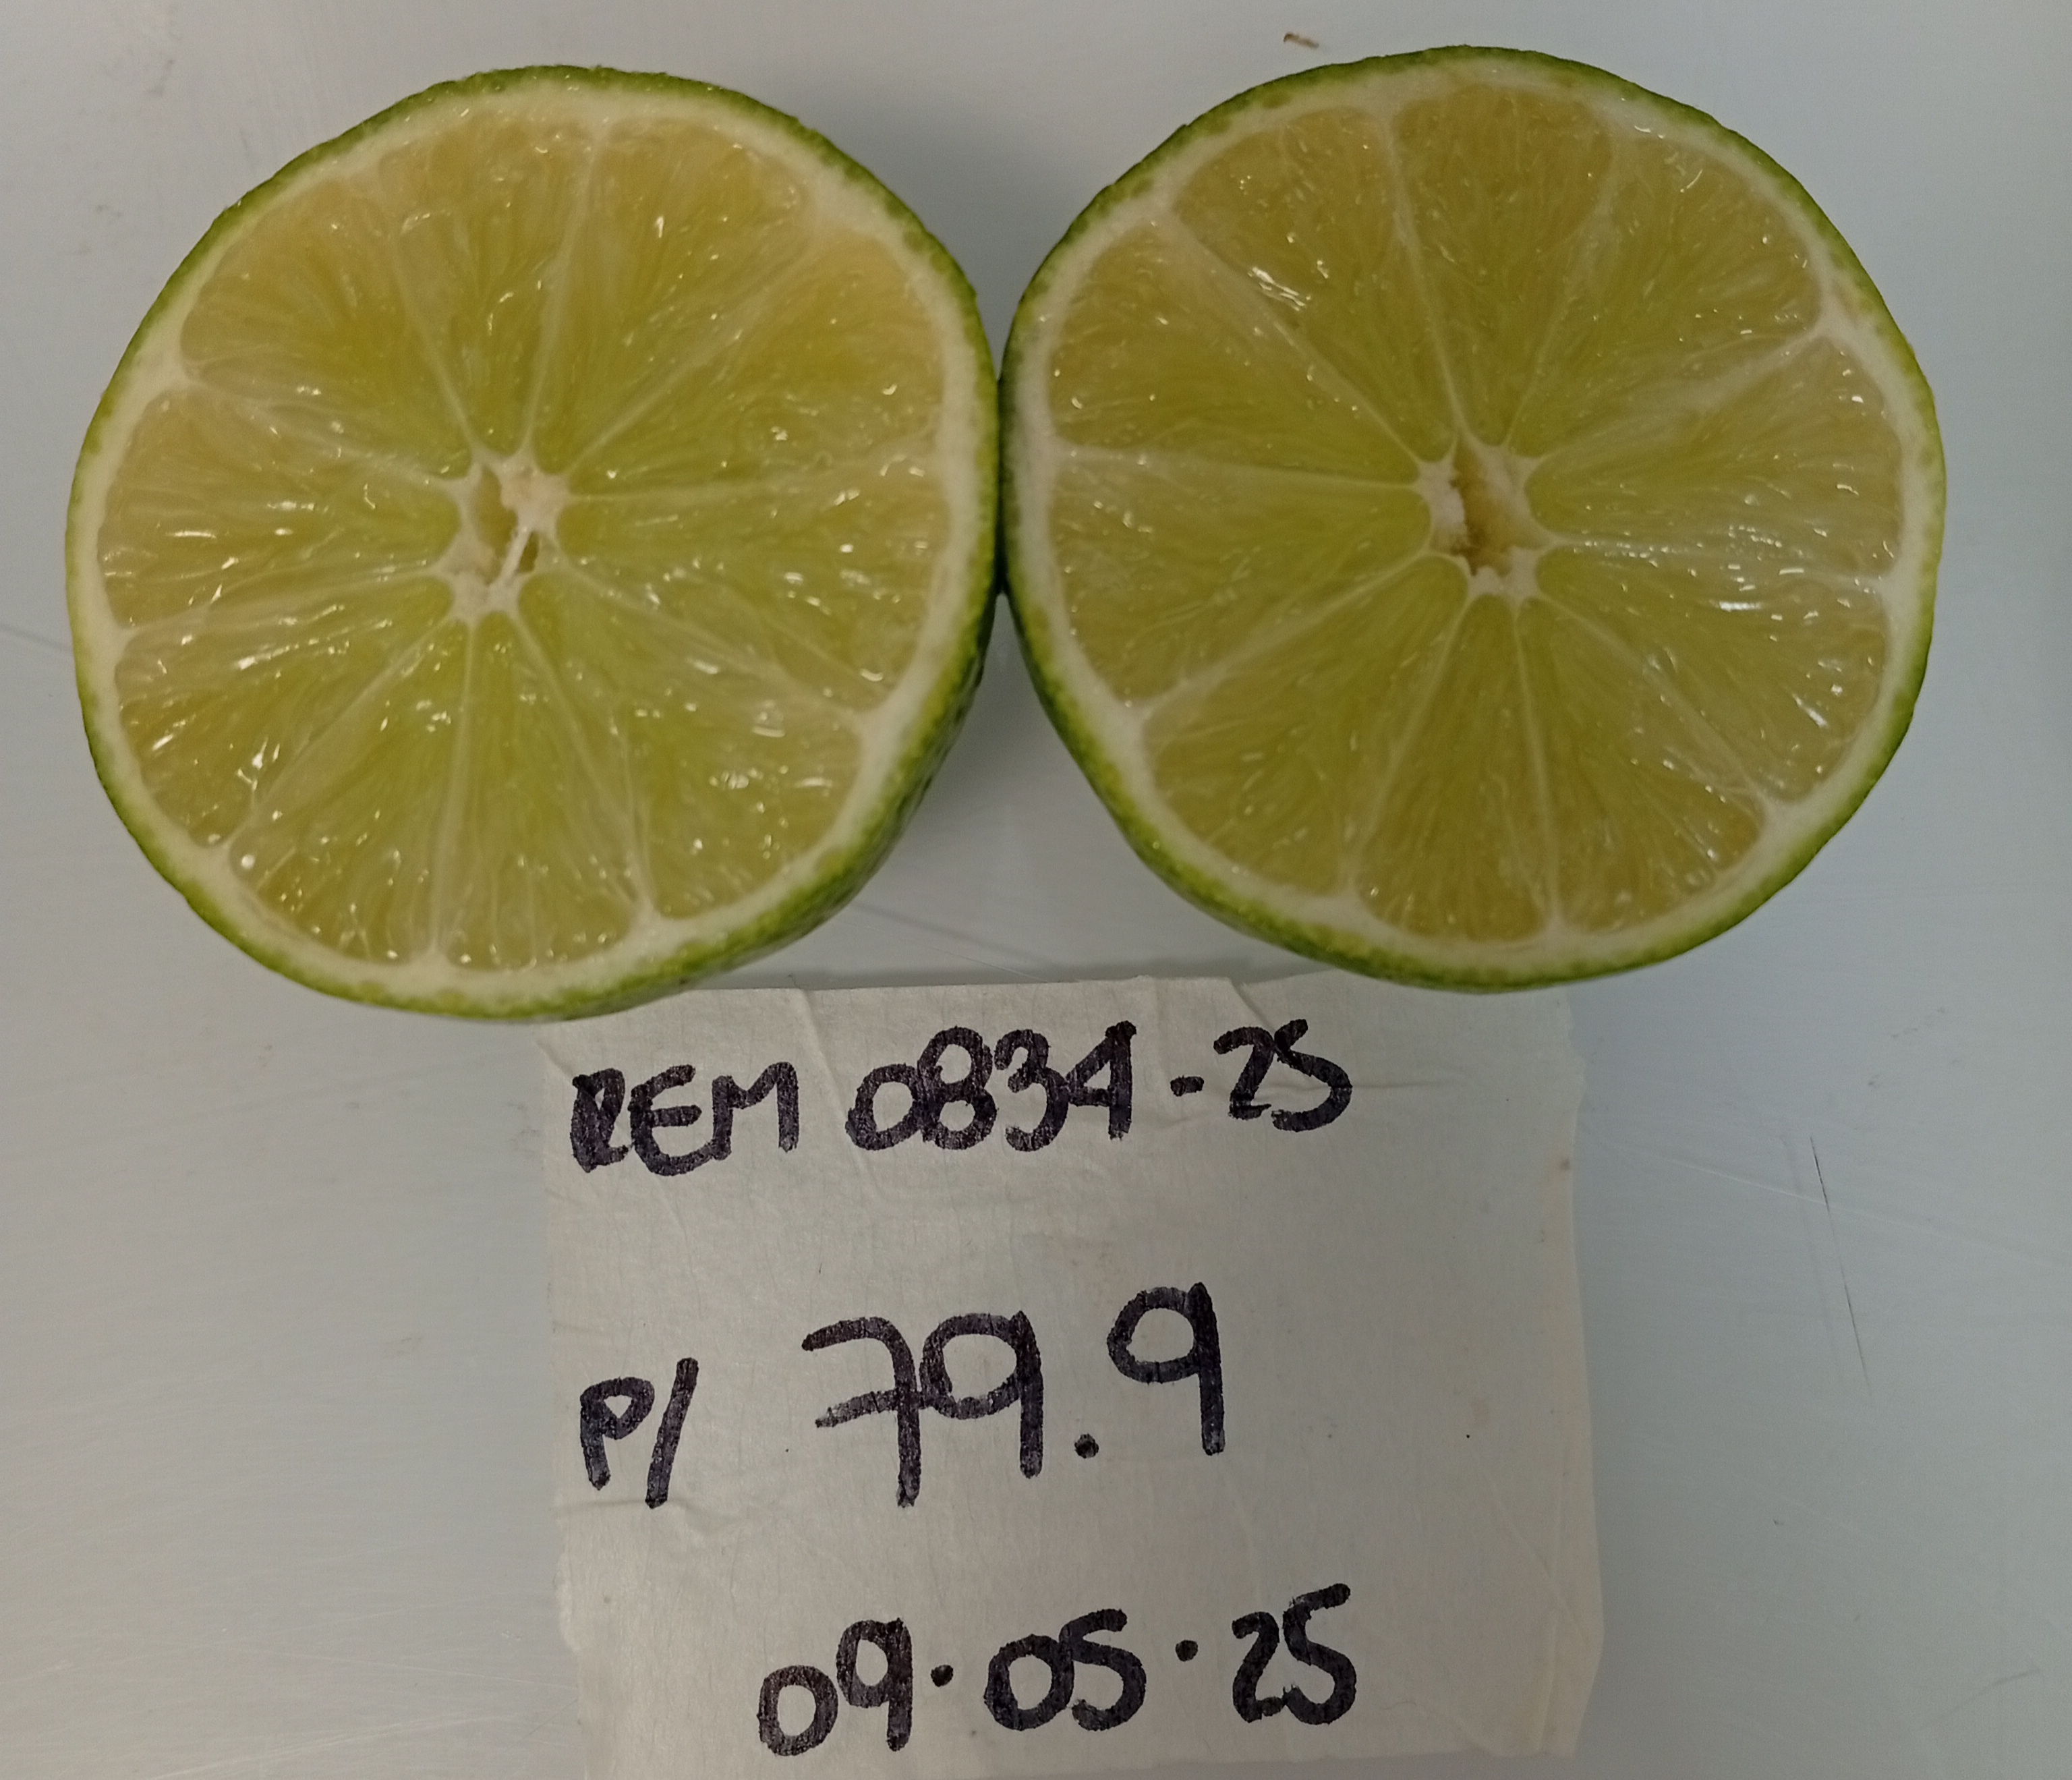 REM 0834-25
P/ 79.9
09.05.25